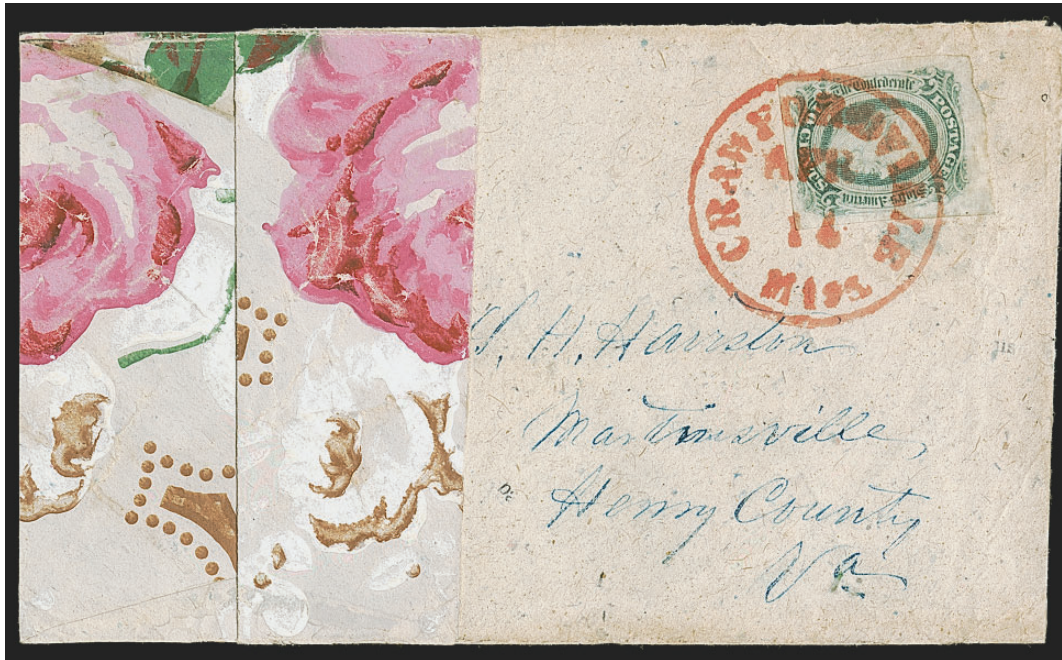 CRAWFORDSVILLE
11
MISS.
The Confederate
POSTAGE
States America
S. H. Hairston
Martinsville
Henry County
Va